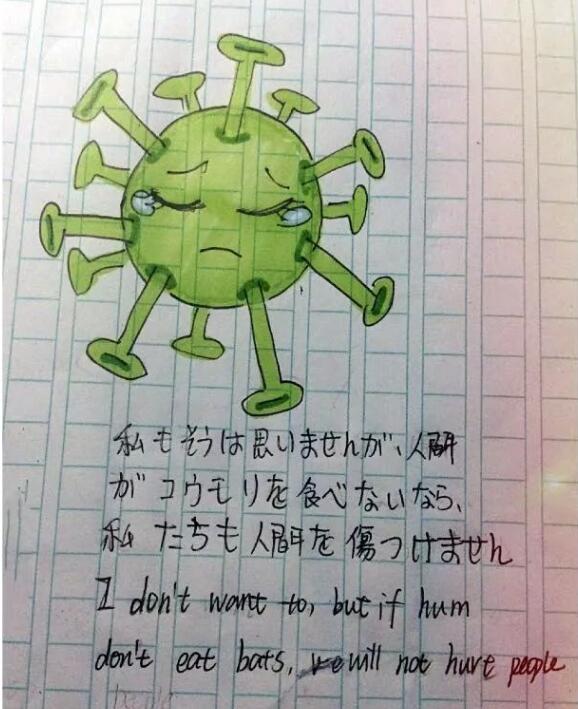 私もそうは思いませんが、人間
がコウモリを食べないなら、
私たちも人間を傷つけません
I don't want to, but if hum
don't eat bats, we will not hurt people